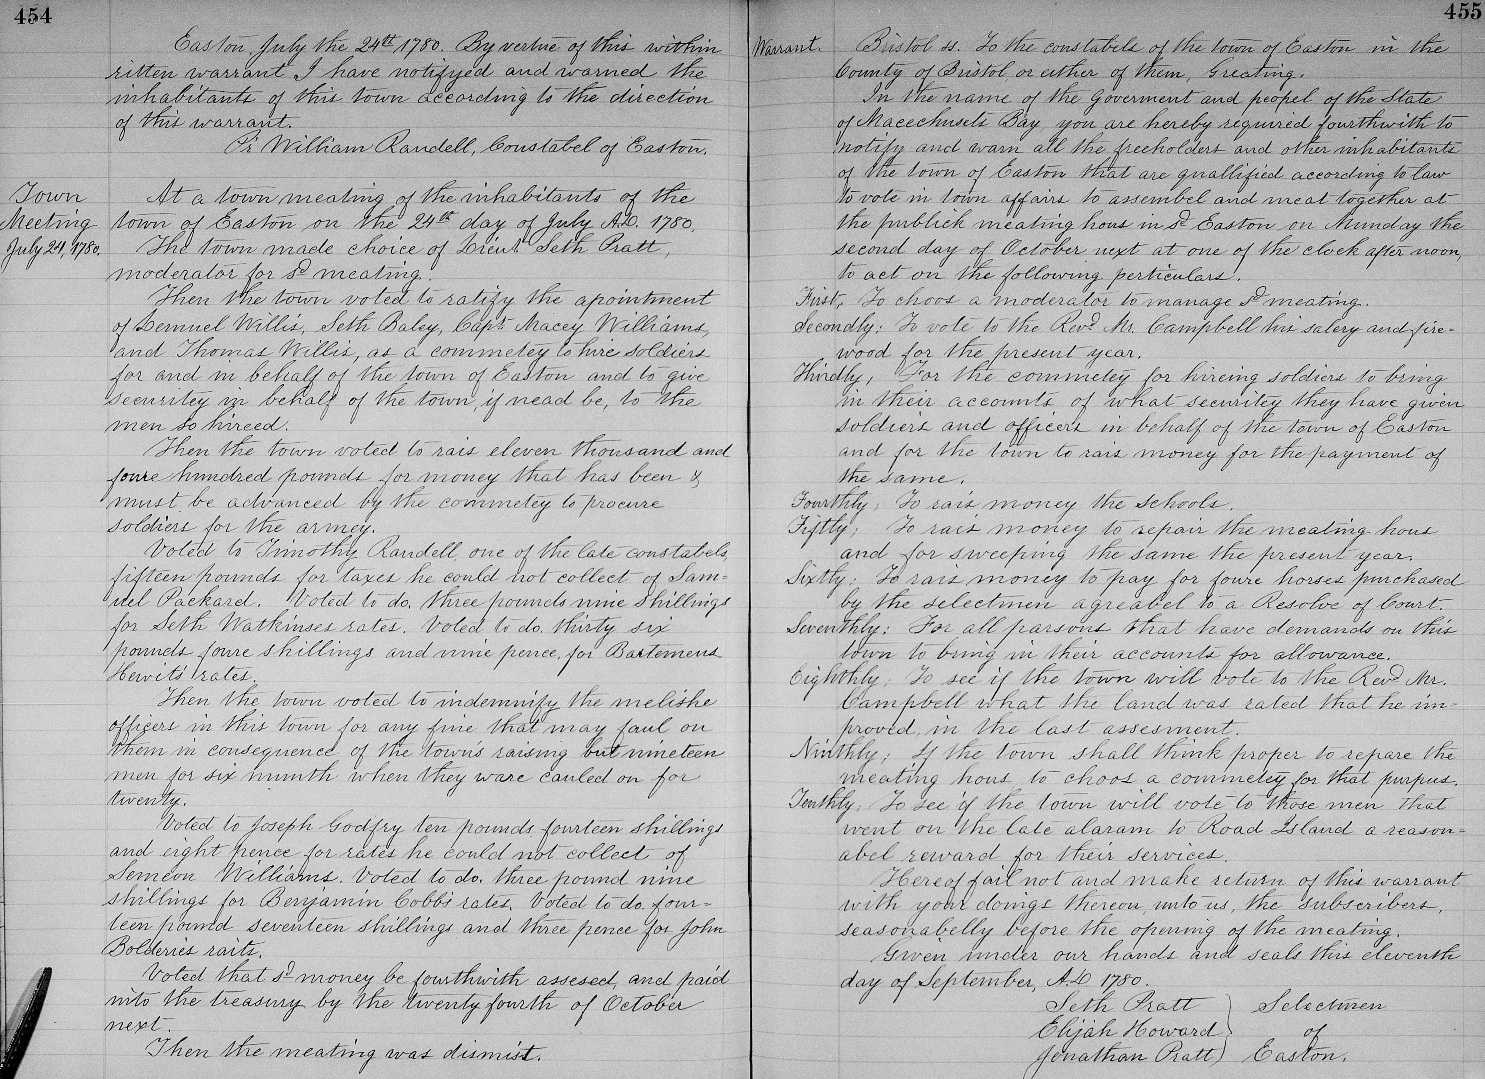 454
Easton, July the 24th 1780. By vertue of this within
ritten warrant I have notifyed and warned the
inhabitants of this town according to the direction
of this warrant.
Pr William Randell, Constabel of Easton.
Town
Meeting
July 24, 1780.
At a town meating of the inhabitants of the
town of Easton on the 24th day of July A.D. 1780,
The town made choice of Lieut Seth Pratt,
moderator for sd meating.
Then the town voted to ratify the apointment
of Lemuel Willis, Seth Baley, Capt. Macey Williams,
and Thomas Willis, as a commetey to hire soldiers
for and in behalf of the town of Easton and to give
securitey in behalf of the town, if nead be, to the
men so hireed.
Then the town voted to rais eleven thousand and
foure hundred pounds for money that has been &
must be advanced by the commetey to procure
soldiers for the armey.
Voted to Timothy Randell, one of the late constabels,
fifteen pounds for taxes he could not collect of Sam=
uel Packard. Voted to do. three pounds nine shillings
for Seth Watkinses rates. Voted to do. thirty six
pounds foure shillings and nine pence, for Bartemeus
Hewits rates.
Then the town voted to indemnify the melishe
officers in this town for any fine that may faul on
them in consequence of the town's raising but nineteen
men for six munth when they ware cauled on for
twenty.
Voted to Joseph Godfry ten pounds fourteen shillings
and eight pence for rates he could not collect of
Semeon Williams. Voted to do. three pound nine
shillings for Benjamin Cobbs rates. Voted to do. four=
teen pound seventeen shillings and three pence for John
Bolderies raits.
Voted that sd money be fourthwith assesed, and paid
into the treasury by the twenty fourth of October
next.
Then the meating was dismist.
455
Warrant.
Bristol ss. To the constabels of the town of Easton in the
County of Bristol or either of them, Greating.
In the name of the Goverment and peopel of the State
of Macechusets Bay you are hereby required fourthwith to
notify and warn all the freeholders and other inhabitants
of the town of Easton that are quallified according to law
to vote in town affairs to assembel and meat together at
the publick meating hous in sd Easton on Munday the
second day of October next at one of the clock after noon,
to act on the following perticulars.
First, To choos a moderator to manage sd meating.
Secondly; To vote to the Revd Mr. Campbell his salery and fire=
wood for the present year.
Thirdly; For the commetey for hireing soldiers to bring
in their accounts of what securitey they have given
soldiers and officers in behalf of the town of Easton
and for the town to rais money for the payment of
the same.
Fourthly; To rais money the schools.
Fiftly; To rais money to repair the meating hous
and for sweeping the same the present year.
Sixtly; To rais money to pay for foure horses purchased
by the selectmen agreabel to a Resolve of Court.
Seventhly; For all parsons that have demands on this
town to bring in their accounts for allowance.
Eighthly; To see if the town will vote to the Revd Mr.
Campbell what the land was rated that he im=
proved, in the last assesment.
Ninthly; If the town shall think proper to repare the
meating hous to choos a commetey for that purpus.
Tenthly; To see if the town will vote to those men that
went on the late alaram to Road Island a reason=
abel reward for their services.
Hereof fail not and make return of this warrant
with your doings thereon, unto us, the subscribers,
seasonabelly before the opening of the meating.
Given under our hands and seals this eleventh
day of September, A.D. 1780.
Seth Pratt Selectmen
Elijah Howard of
Jonathan Pratt Easton.